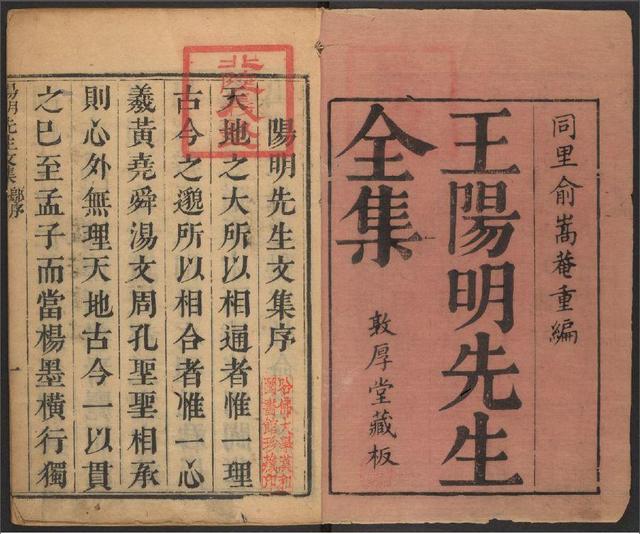 同里俞嵩菴重編
王陽明先生
全集
敦厚堂藏板
陽明先生文集序
天地之大所以相通者惟一理
古今之邈所以相合者惟一心
羲黃堯舜湯文周孔聖聖相承
則心外無理天地古今一以貫
之巳至孟子而當楊墨橫行獨
陽明先生文集
序
一
哈佛大學漢和
圖書館珍藏印